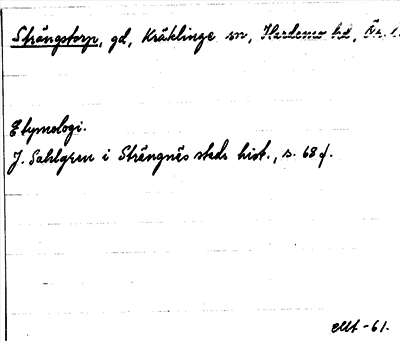 Strängstorp, gd, Kräklinge sn, Hardemo hd, Är. l.
Etymologi.
J. Sahlgren i Strängnäs stads hist., s. 68 f.
-61.